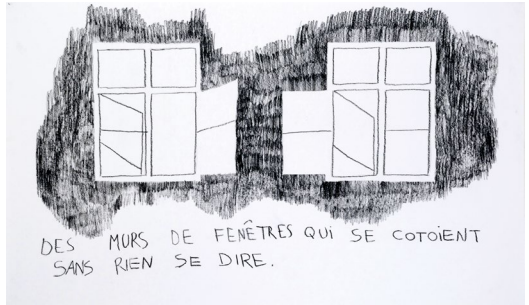 DES MURS DE FENÊTRES QUI SE COTOIENT
SANS RIEN SE DIRE.